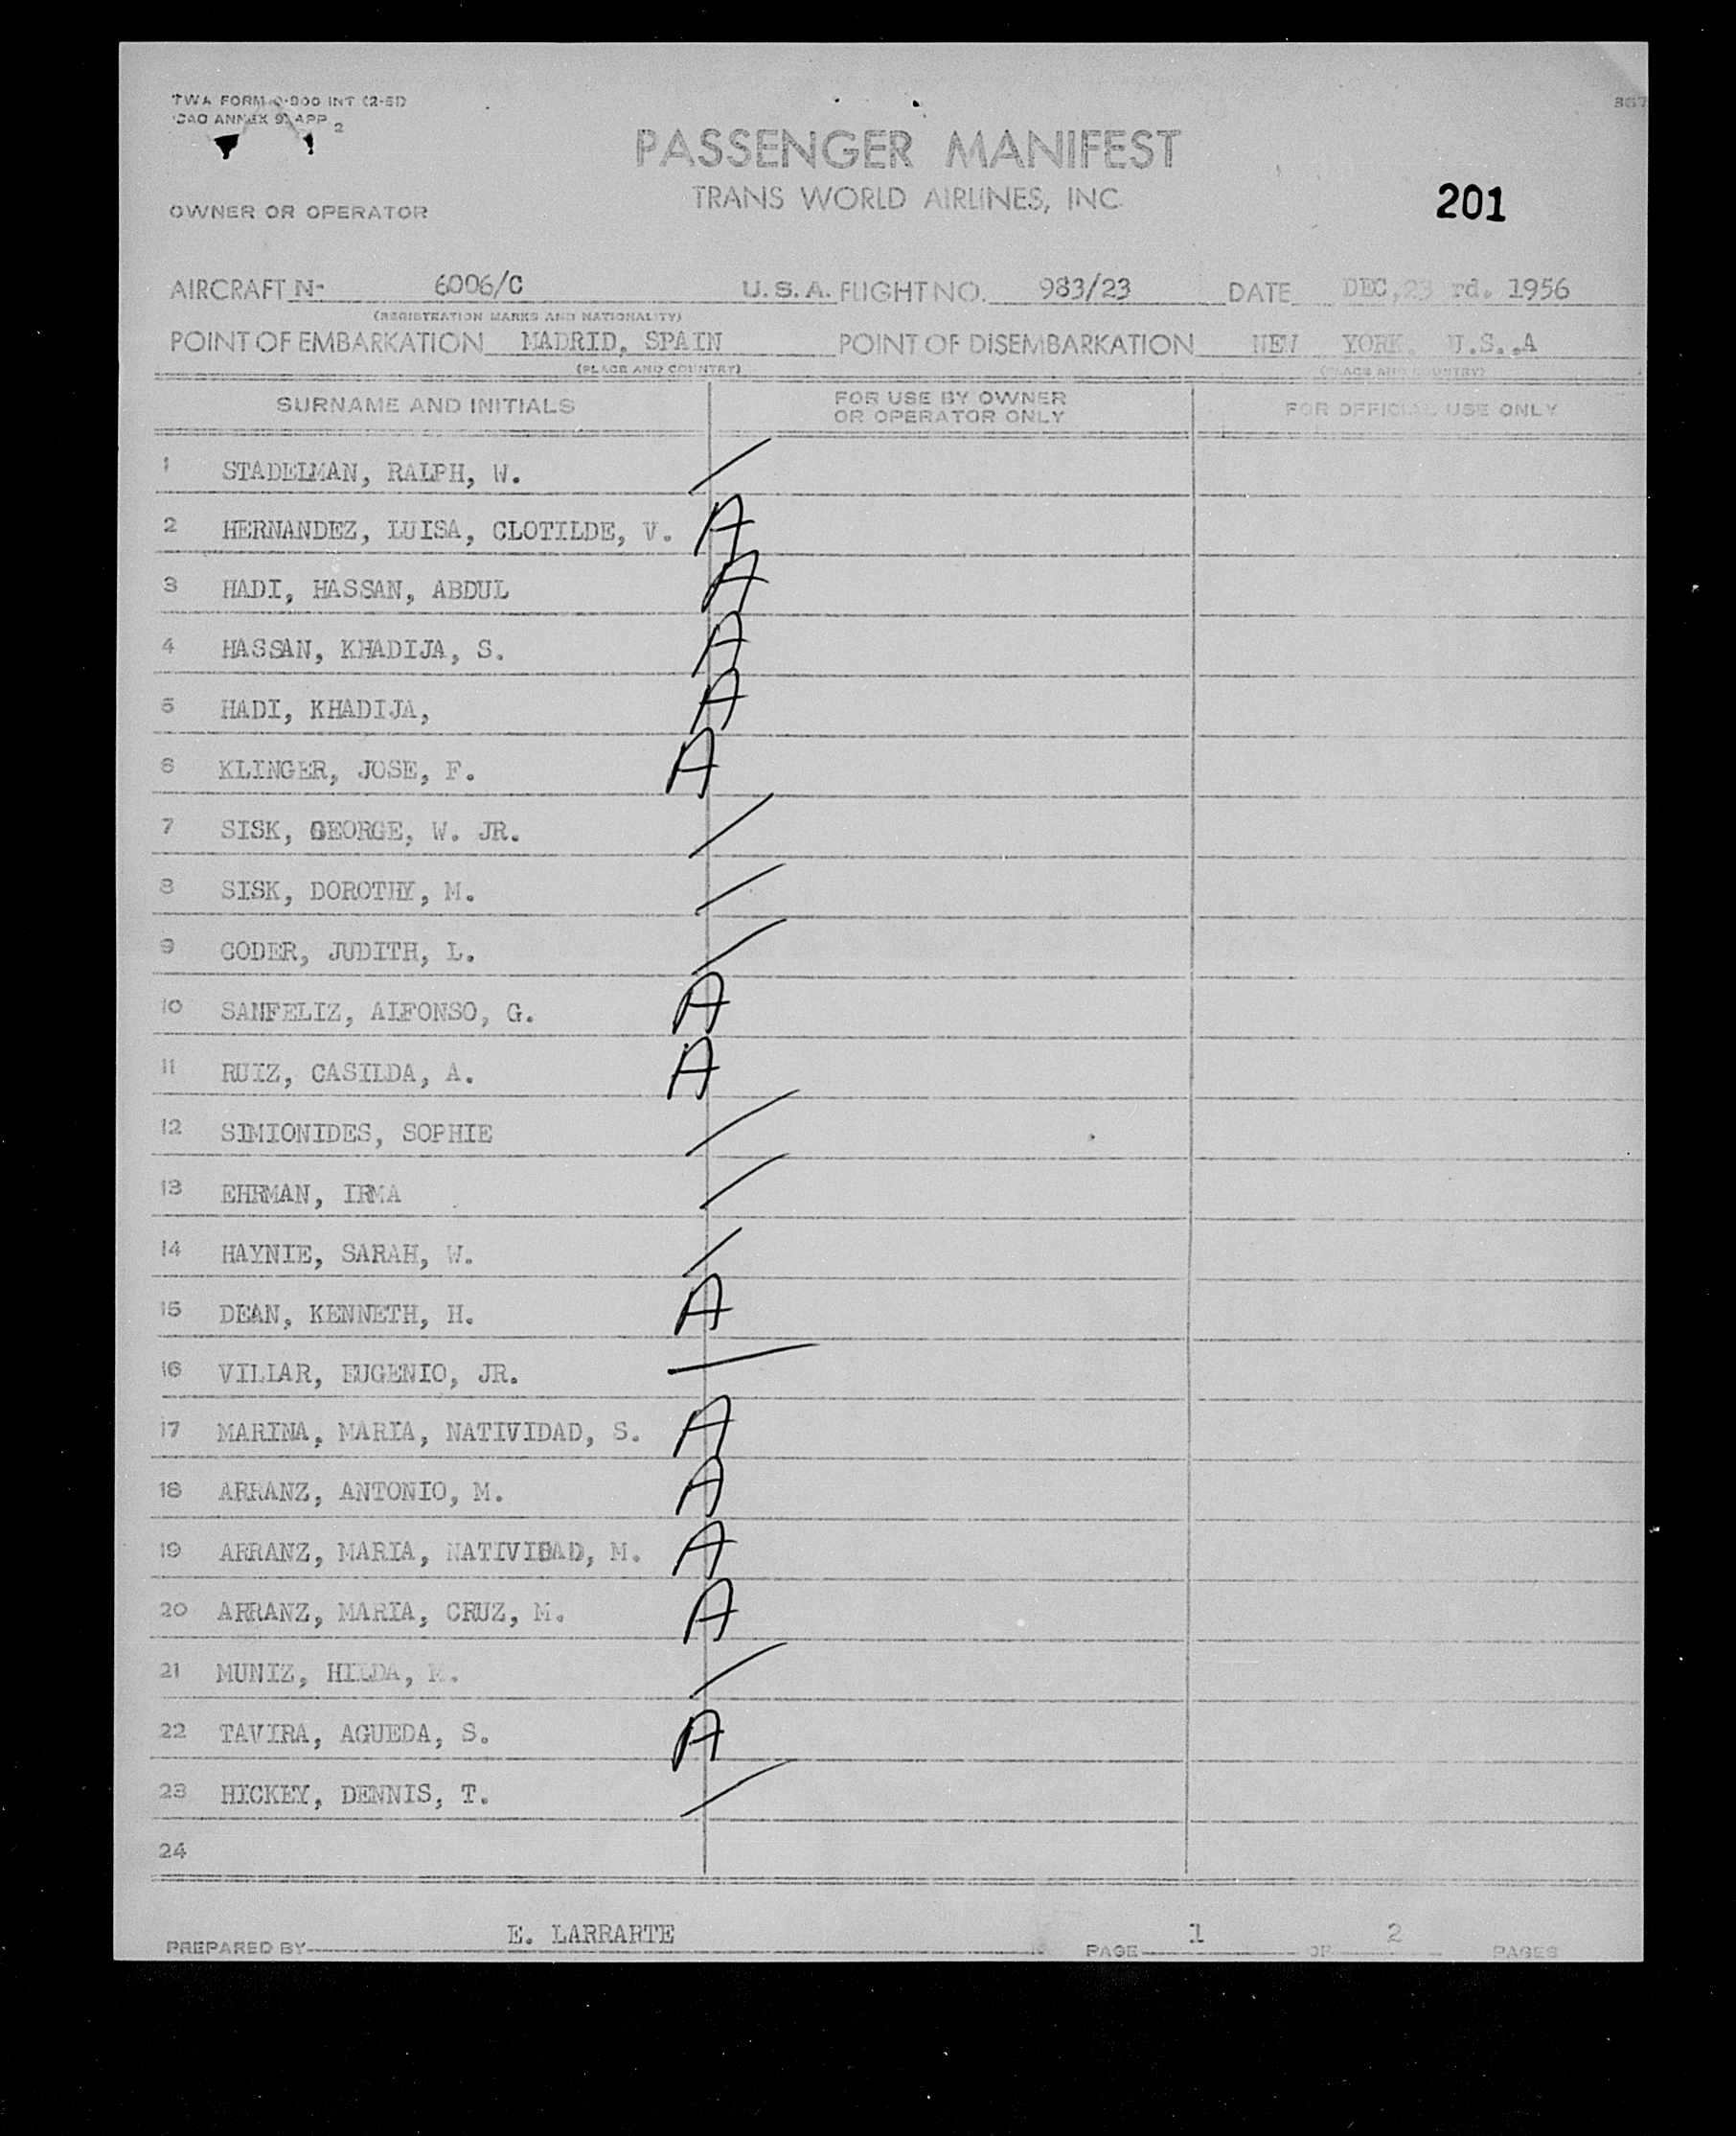 TWA FORM O-800 INT (2-51)
ICAO ANNEX 9, APP 2
367
PASSENGER MANIFEST
TRANS WORLD AIRLINES, INC.
201
OWNER OR OPERATOR
AIRCRAFT N- 6006/C U.S.A. FLIGHT NO. 983/23 DATE DEC,23 rd. 1956
(REGISTRATION MARKS AND NATIONALITY)
POINT OF EMBARKATION MADRID, SPAIN POINT OF DISEMBARKATION NEW YORK, U.S.,A
(PLACE AND COUNTRY) (PLACE AND COUNTRY)
SURNAME AND INITIALS FOR USE BY OWNER OR OPERATOR ONLY FOR OFFICIAL USE ONLY
1 STADELMAN, RALPH, W. /
2 HERNANDEZ, LUISA, CLOTILDE, V. A
3 HADI, HASSAN, ABDUL A
4 HASSAN, KHADIJA, S. A
5 HADI, KHADIJA, A
6 KLINGER, JOSE, F. A
7 SISK, GEORGE, W. JR. /
8 SISK, DOROTHY, M. /
9 CODER, JUDITH, L. /
10 SANFELIZ, ALFONSO, G. A
11 RUIZ, CASILDA, A. A
12 SIMIONIDES, SOPHIE /
13 EHRMAN, IRMA /
14 HAYNIE, SARAH, W. /
15 DEAN, KENNETH, H. A
16 VILLAR, EUGENIO, JR. /
17 MARINA, MARIA, NATIVIDAD, S. A
18 ARRANZ, ANTONIO, M. A
19 ARRANZ, MARIA, NATIVIDAD, M. A
20 ARRANZ, MARIA, CRUZ, M. A
21 MUNIZ, HILDA, M. /
22 TAVIRA, AGUEDA, S. A
23 HICKEY, DENNIS, T. /
24
PREPARED BY E. LARRARTE PAGE 1 OF 2 PAGES